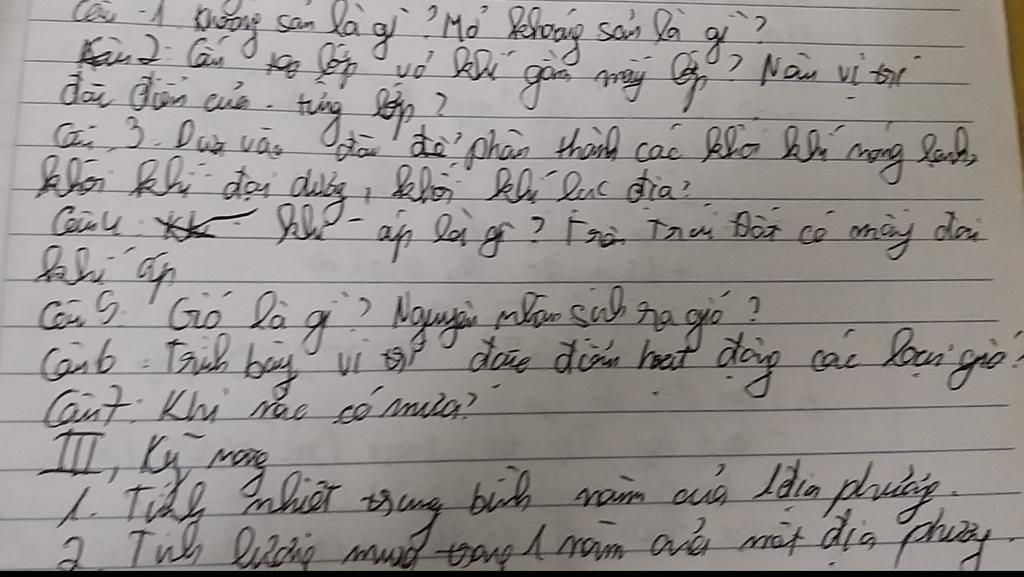 Câu 1 Khoáng sản là gì? Mỏ khoáng sản là gì?
Câu 2: Cấu tạo lớp vỏ khí gồm mấy lớp? Nêu vị trí
đặc điểm của từng lớp?
Câu 3. Dựa vào đâu để phân thành các khối khí nóng lạnh,
khối khí đại dương, khối khí lục địa?
Câu 4. Khí áp là gì? Trên Trái Đất có mấy đai
khí áp
Câu 5. Gió là gì? Nguyên nhân sinh ra gió?
Câu 6. Trình bày vị trí đặc điểm hoạt động các loại gió?
Câu 7: Khi nào có mưa?
III, Kỹ năng
1. Tính nhiệt trung bình năm của 1 địa phương.
2. Tính lượng mưa trong 1 năm của một địa phương.